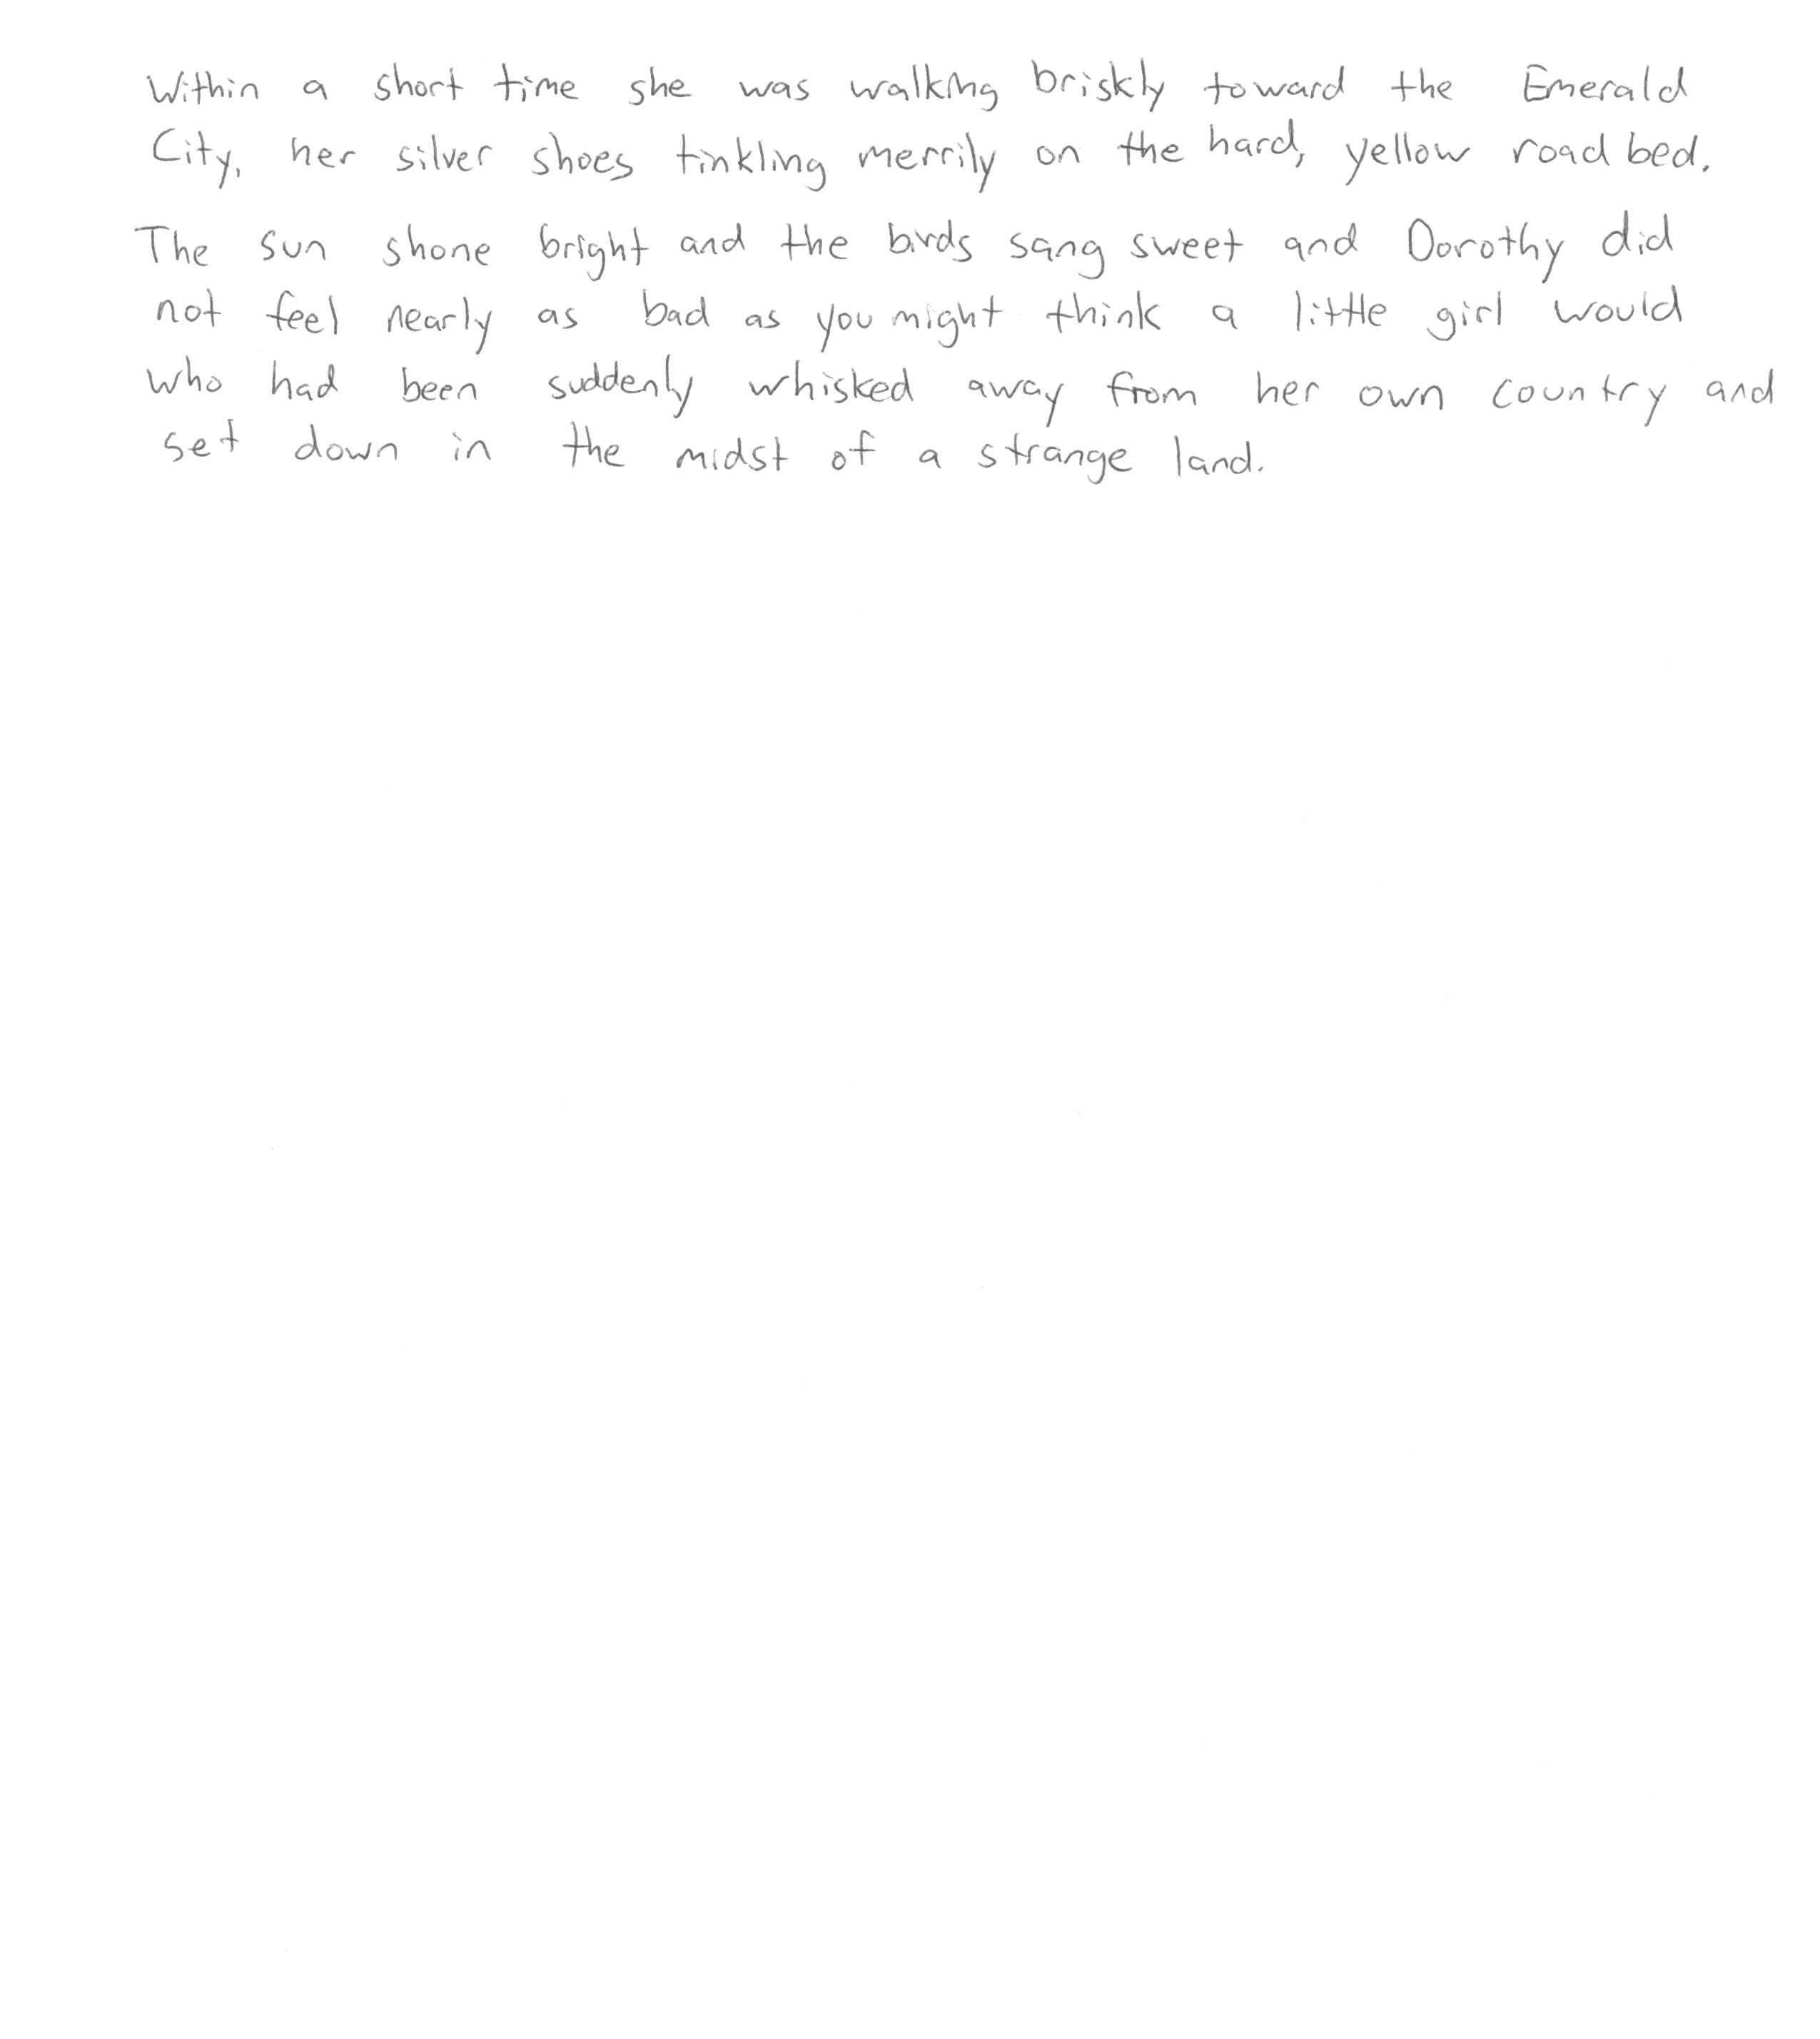 Within a short time she was walking briskly toward the Emerald
City, her silver shoes tinkling merrily on the hard, yellow road bed.
The sun shone bright and the birds sang sweet and Dorothy did
not feel nearly as bad as you might think a little girl would
who had been suddenly whisked away from her own country and
set down in the midst of a strange land.